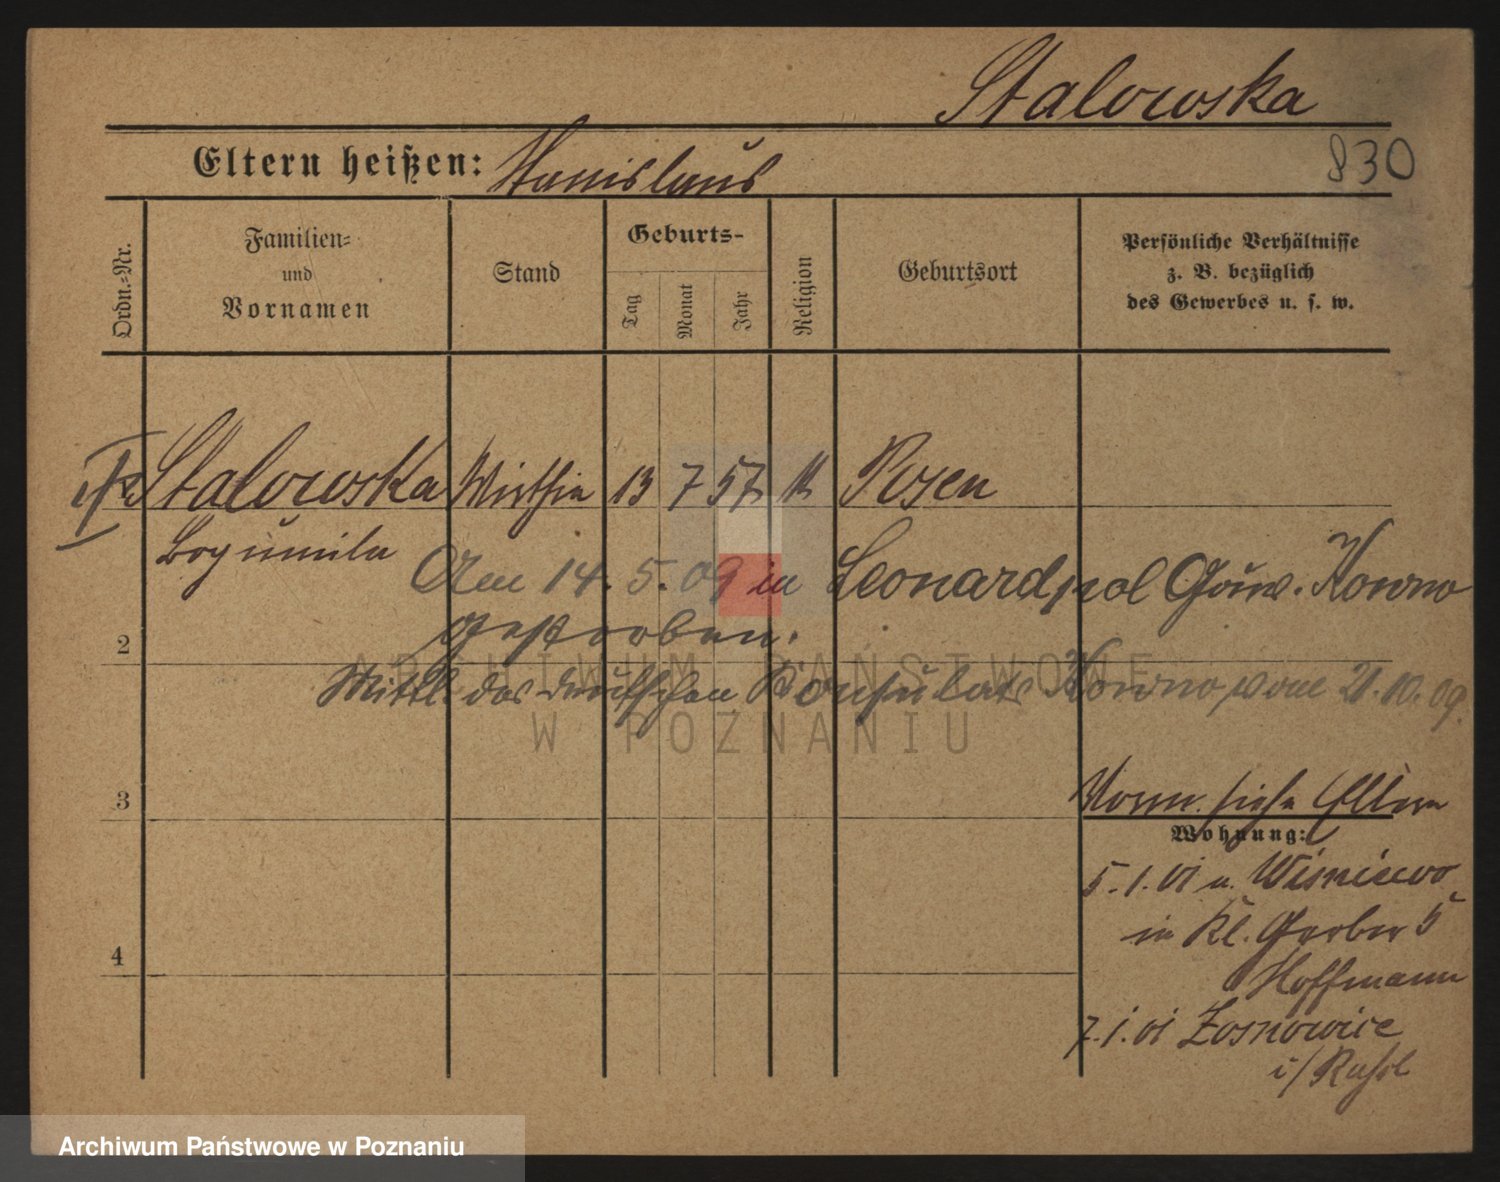 Stalowska
830
Eltern heißen: Stanislaus
Ordn.-Nr.
Familien- und Vornamen
Stand
Geburts-
Tag
Monat
Jahr
Religion
Geburtsort
Persönliche Verhältnisse
z. B. bezüglich
des Gewerbes u. s. w.
Stalowska Wirthin 13 7 57 K Posen
Bogumila
Am 14. 5. 09 in Leonardpol Gouv. Kowno
gestorben.
2
Mittl. des deutschen Konsulats Kowno vom 21.10.09.
3
Vorm. siehe Eltern
Wohnung:
5.1.01 u. Wisniewo
in Kl. Gerber 5
4
Hoffmann
7.1.01 Sosnowice
i/Rußl
ARCHIWUM PAŃSTWOWE
W POZNANIU
Archiwum Państwowe w Poznaniu